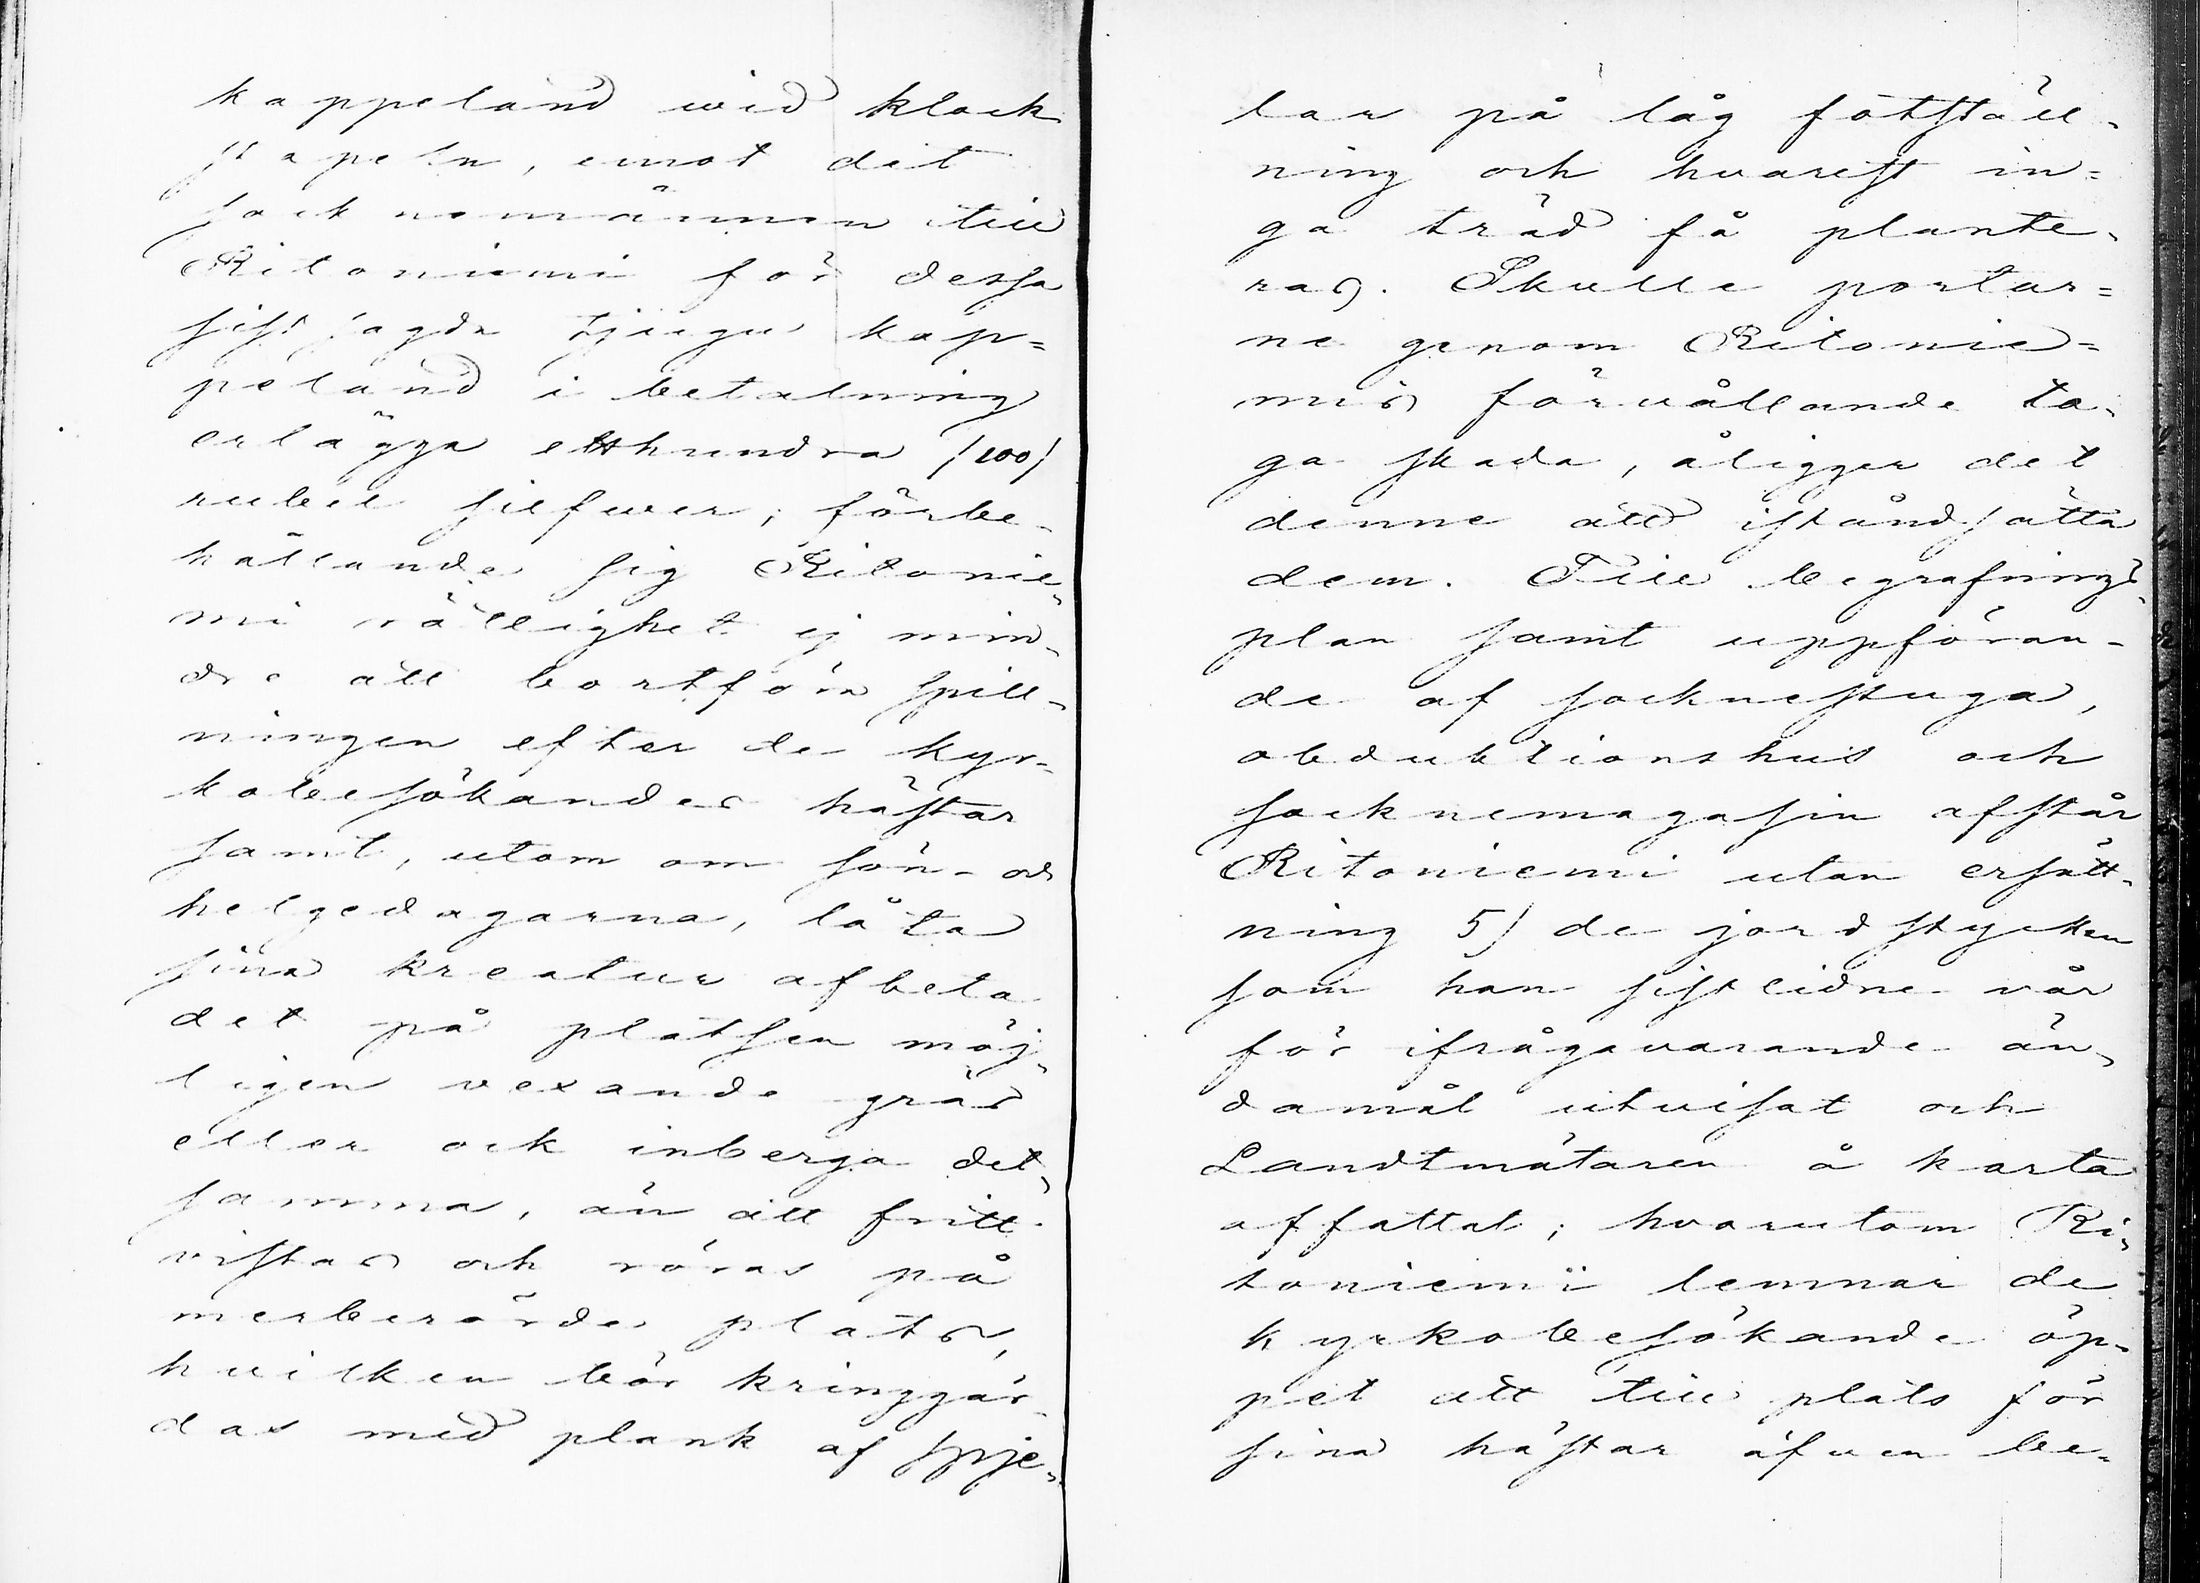 kappeland wid klock
stapeln, emot det
socknemännen till
Ritoniemi för dessa
sistsagde tjugu kap=
peland i betalning
erlägga etthundra /100/
rubel silfwer; förbe-
hållande sig Ritonie-
mi rättighet ej min-
dre att bortföra spill-
ningen efter de kyr-
kobesökandes hästar
samt, utom om sön- och
helgedagarna, låta
sina kreatur afbeta
det på platsen möj-
ligen vexande gräs
eller ock inberga det-
samma, än att fritt
vistas och röras på
merberörde plats,
hvilken bör kringgär-
das med plank af spje-
lar på låg fotställ-
ning och hvarest in=
ga träd få plante-
ras. Skulle portar=
ne genom Ritonie=
mis förvållande ta-
ga skada, åligger det
denne att iståndsätta
dem. Till begrafnings-
plan samt uppföran-
de af socknestuga,
obduktionshus och
socknemagasin afstår
Ritoniemi utan ersätt-
ning 5/ de jordstycken
som han sistlidne vår
för ifrågavarande än-
damål utvisat och
Landtmätaren å karta
affattat; hvarutom Ri-
toniemi lemnar de
kyrkobesökande öp-
pet att till plats för
sina hästar äfven be-